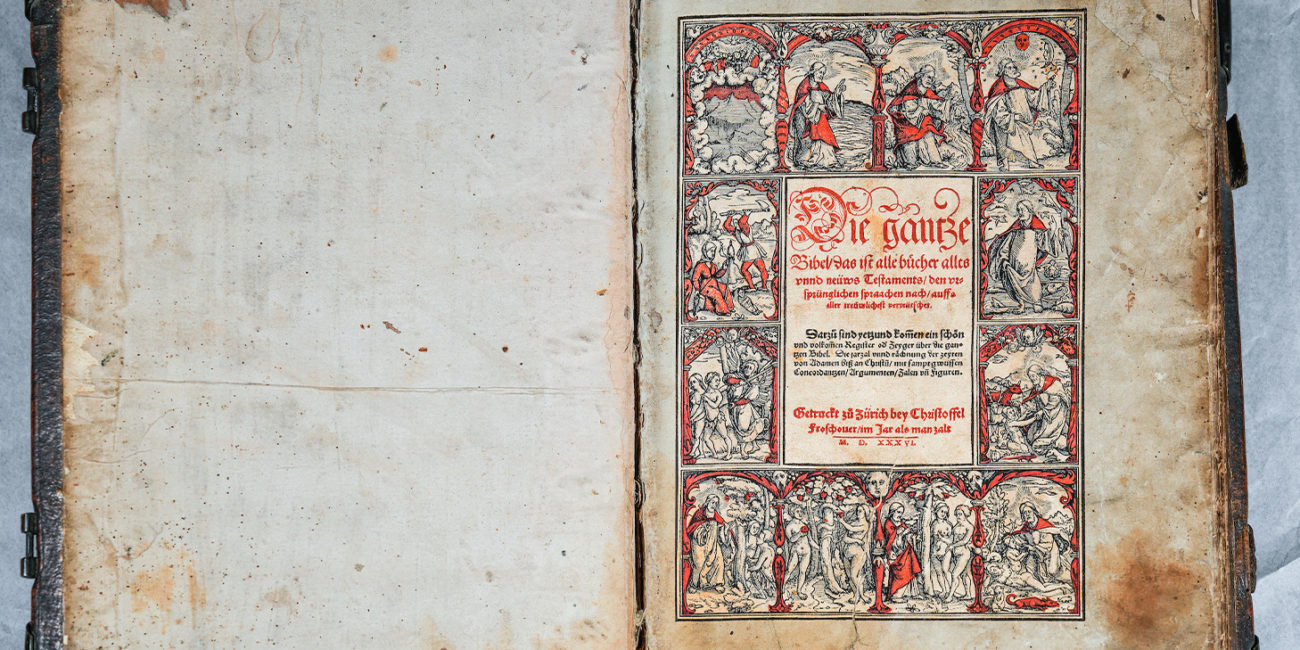 Die gantze
Bibel / das ist alle bücher allts
vnnd neüws Testaments / den vr-
sprünglichen spraachen nach / auff
aller treüwlichest verteütschet.
Darzů sind yetzund kom̃en ein schön
vnd volkom̃en Register od Zeyger über die gan-
tzen Bibel. Die jarzal vnnd rächnung der zeyten
von Adamen biß an Christũ / mit sampt gwüssen
Concordantzen / Argumenten / Zalen vñ Figuren.
Getruckt zů Zürich bey Christoffel
Froschouer / im Jar als man zalt
M. D. XXXVI.